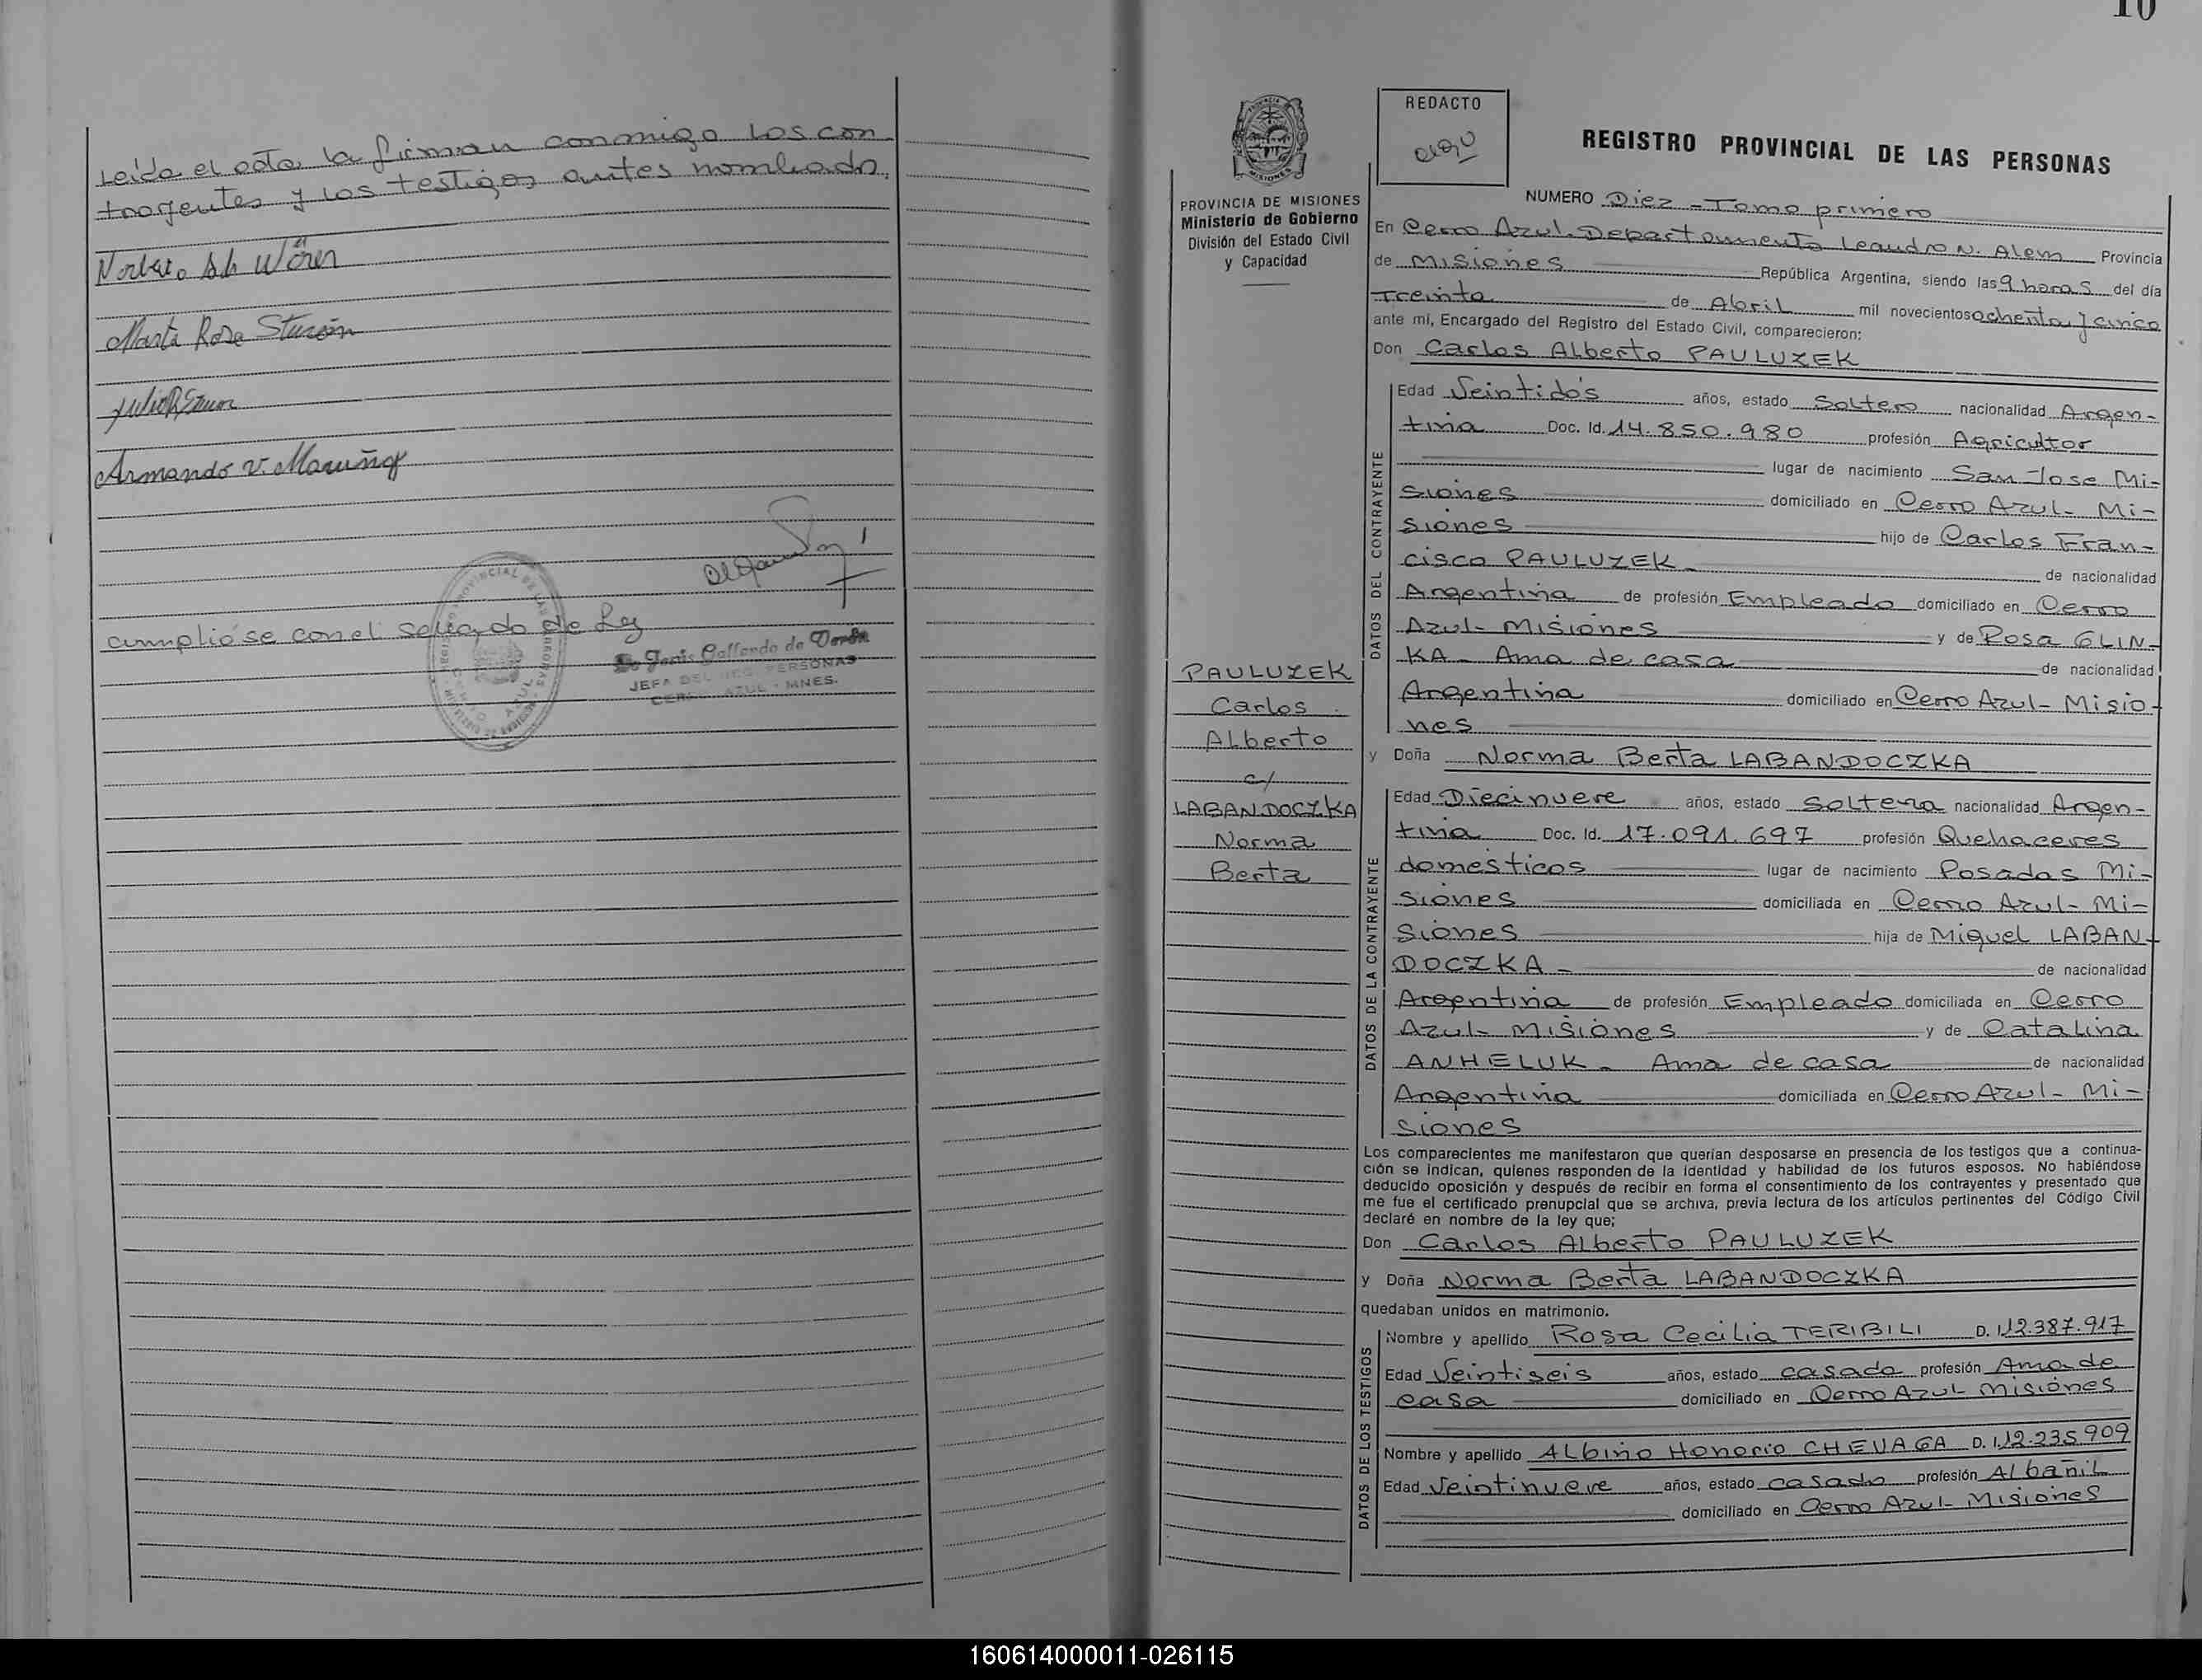 Leída el acta, la firman conmigo los con
trayentes y los testigos antes nombrado.
Marta Rosa
Armando V.
cumplióse con el sellado de Ley
JEFA DEL REG. PERSONAS
CERRO AZUL - MNES.
10
REDACTO
REGISTRO PROVINCIAL DE LAS PERSONAS
PROVINCIA DE MISIONES
Ministerio de Gobierno
División del Estado Civil
y Capacidad
NUMERO Diez - Tomo primero
En Cerro Azul. Departamento Leandro N. Alem Provincia
de Misiones República Argentina, siendo las 9 horas del día
Treinta de Abril mil novecientos ochenta y cinco
ante mí, Encargado del Registro del Estado Civil, comparecieron:
Don Carlos Alberto PAULUZEK
DATOS DEL CONTRAYENTE
Edad Veintidós años, estado Soltero nacionalidad Argen-
tina Doc. Id. 14.850.980 profesión Agricultor
lugar de nacimiento San Jose Mi-
siones domiciliado en Cerro Azul- Mi-
siones hijo de Carlos Fran-
cisco PAULUZEK - de nacionalidad
Argentina de profesión Empleado domiciliado en Cerro
Azul- Misiones y de Rosa GLIN-
KA - Ama de casa de nacionalidad
Argentina domiciliado en Cerro Azul- Misio-
nes
PAULUZEK
Carlos
Alberto
c/
LABANDOCZKA
Norma
Berta
y Doña Norma Berta LABANDOCZKA
DATOS DE LA CONTRAYENTE
Edad Diecinueve años, estado Soltera nacionalidad Argen-
tina Doc. Id. 17.091.697 profesión Quehaceres
domésticos lugar de nacimiento Posadas Mi-
siones domiciliada en Cerro Azul- Mi-
siones hija de Miguel LABAN-
DOCZKA - de nacionalidad
Argentina de profesión Empleado domiciliada en Cerro
Azul- Misiones y de Catalina
ANHELUK - Ama de casa de nacionalidad
Argentina domiciliada en Cerro Azul- Mi-
siones
Los comparecientes me manifestaron que querían desposarse en presencia de los testigos que a continua-
ción se indican, quienes responden de la identidad y habilidad de los futuros esposos. No habiéndose
deducido oposición y después de recibir en forma el consentimiento de los contrayentes y presentado que
me fue el certificado prenupcial que se archiva, previa lectura de los artículos pertinentes del Código Civil
declaré en nombre de la ley que;
Don Carlos Alberto PAULUZEK
y Doña Norma Berta LABANDOCZKA
quedaban unidos en matrimonio.
DATOS DE LOS TESTIGOS
Nombre y apellido Rosa Cecilia TERIBILI D. I. 12.387.917
Edad Veintiseis años, estado casada profesión Ama de
casa domiciliado en Cerro Azul- Misiones
Nombre y apellido Albino Honorio CHEVAGA D. I. 12.235.909
Edad Veintinueve años, estado casado profesión Albañil
domiciliado en Cerro Azul- Misiones
160614000011-026115